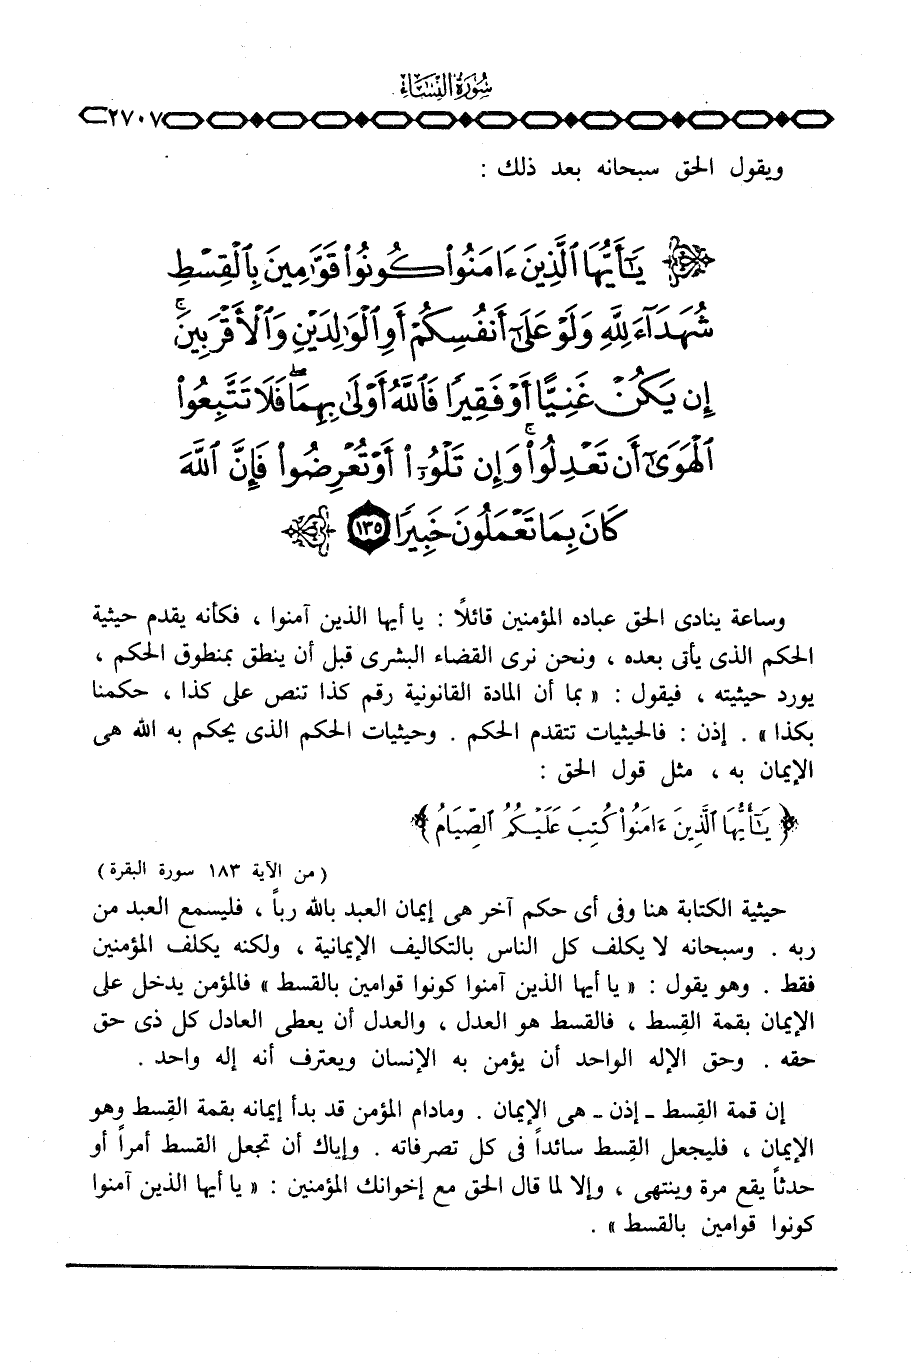 سُورَةُ النِّسَاءِ
٢٧٠٧
ويقول الحق سبحانه بعد ذلك :
يَٰٓأَيُّهَا ٱلَّذِينَ ءَامَنُوا۟ كُونُوا۟ قَوَّٰمِينَ بِٱلْقِسْطِ
شُهَدَآءَ لِلَّهِ وَلَوْ عَلَىٰٓ أَنفُسِكُمْ أَوِ ٱلْوَٰلِدَيْنِ وَٱلْأَقْرَبِينَ ۚ
إِن يَكُنْ غَنِيًّا أَوْ فَقِيرًا فَٱللَّهُ أَوْلَىٰ بِهِمَا ۖ فَلَا تَتَّبِعُوا۟
ٱلْهَوَىٰٓ أَن تَعْدِلُوا۟ ۚ وَإِن تَلْوُۥٓا۟ أَوْ تُعْرِضُوا۟ فَإِنَّ ٱللَّهَ
كَانَ بِمَا تَعْمَلُونَ خَبِيرًا ١٣٥
وساعة ينادى الحق عباده المؤمنين قائلاً : يا أيها الذين آمنوا ، فكأنه يقدم حيثية
الحكم الذى يأتى بعده ، ونحن نرى القضاء البشرى قبل أن ينطق بمنطوق الحكم ،
يورد حيثيته ، فيقول : « بما أن المادة القانونية رقم كذا تنص على كذا ، حكمنا
بكذا » . إذن : فالحيثيات تتقدم الحكم . وحيثيات الحكم الذى يحكم به الله هى
الإيمان به ، مثل قول الحق :
﴿ يَٰٓأَيُّهَا ٱلَّذِينَ ءَامَنُوا۟ كُتِبَ عَلَيْكُمُ ٱلصِّيَامُ ﴾
( من الآية ١٨٣ سورة البقرة )
حيثية الكتابة هنا وفى أى حكم آخر هى إيمان العبد بالله رباً ، فليسمع العبد من
ربه . وسبحانه لا يكلف كل الناس بالتكاليف الإيمانية ، ولكنه يكلف المؤمنين
فقط . وهو يقول : « يا أيها الذين آمنوا كونوا قوامين بالقسط » فالمؤمن يدخل على
الإيمان بقمة القِسط ، فالقسط هو العدل ، والعدل أن يعطى العادل كل ذى حق
حقه . وحق الإله الواحد أن يؤمن به الإنسان ويعترف أنه إله واحد .
إن قمة القِسط ـ إذن ـ هى الإيمان . ومادام المؤمن قد بدأ إيمانه بقمة القِسط وهو
الإيمان ، فليجعل القِسط سائداً فى كل تصرفاته . وإياك أن تجعل القسط أمراً أو
حدثاً يقع مرة وينتهى ، وإلا لما قال الحق مع إخوانك المؤمنين : « يا أيها الذين آمنوا
كونوا قوامين بالقسط » .